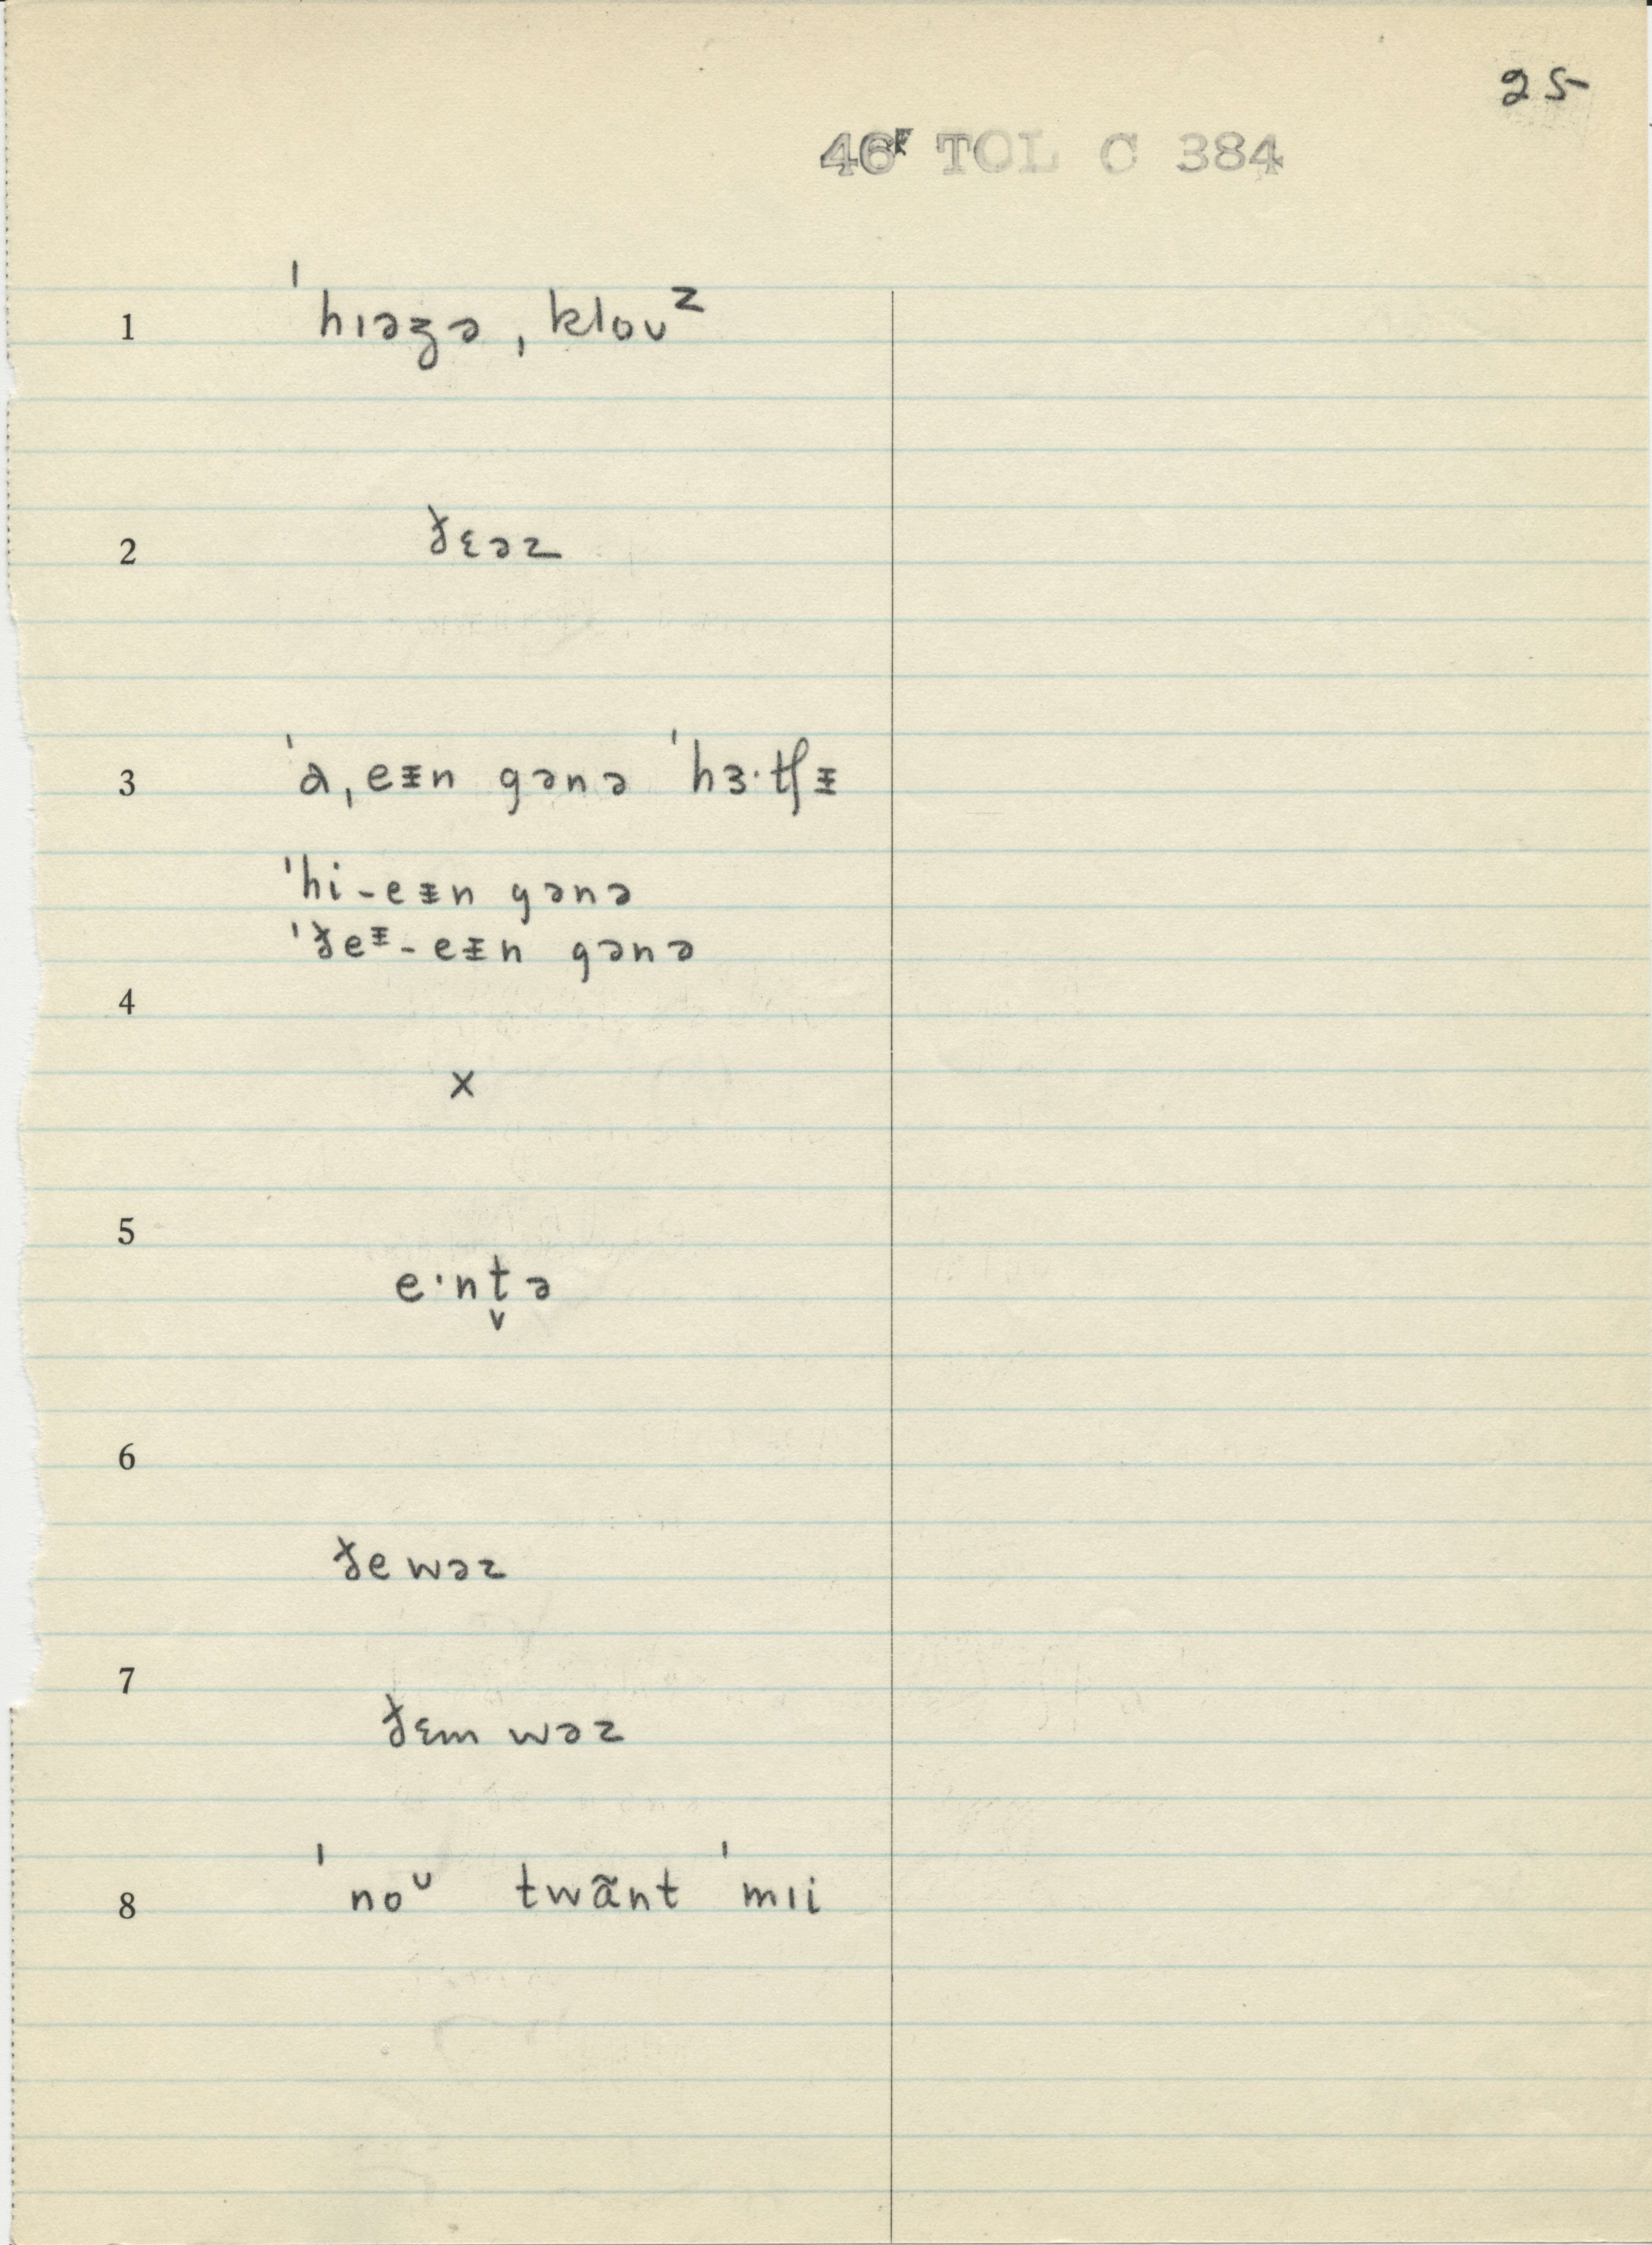 25
46F TOL C 384
1 ˈhɪəʒə ˌkloʊᶻ
2 ɟ̵ɛəz
3 ˈɑˌeɪ̵n gənə ˈhɜ·tʃɪ̵
ˈhi-eɪ̵n gənə
ˈðeᵻ-eɪ̵n gənə
4
x
5
e·nt̬ə
6
ðewəz
7
ðɛm wəz
8 ˈnoᶷ twãnt ˈmɪi